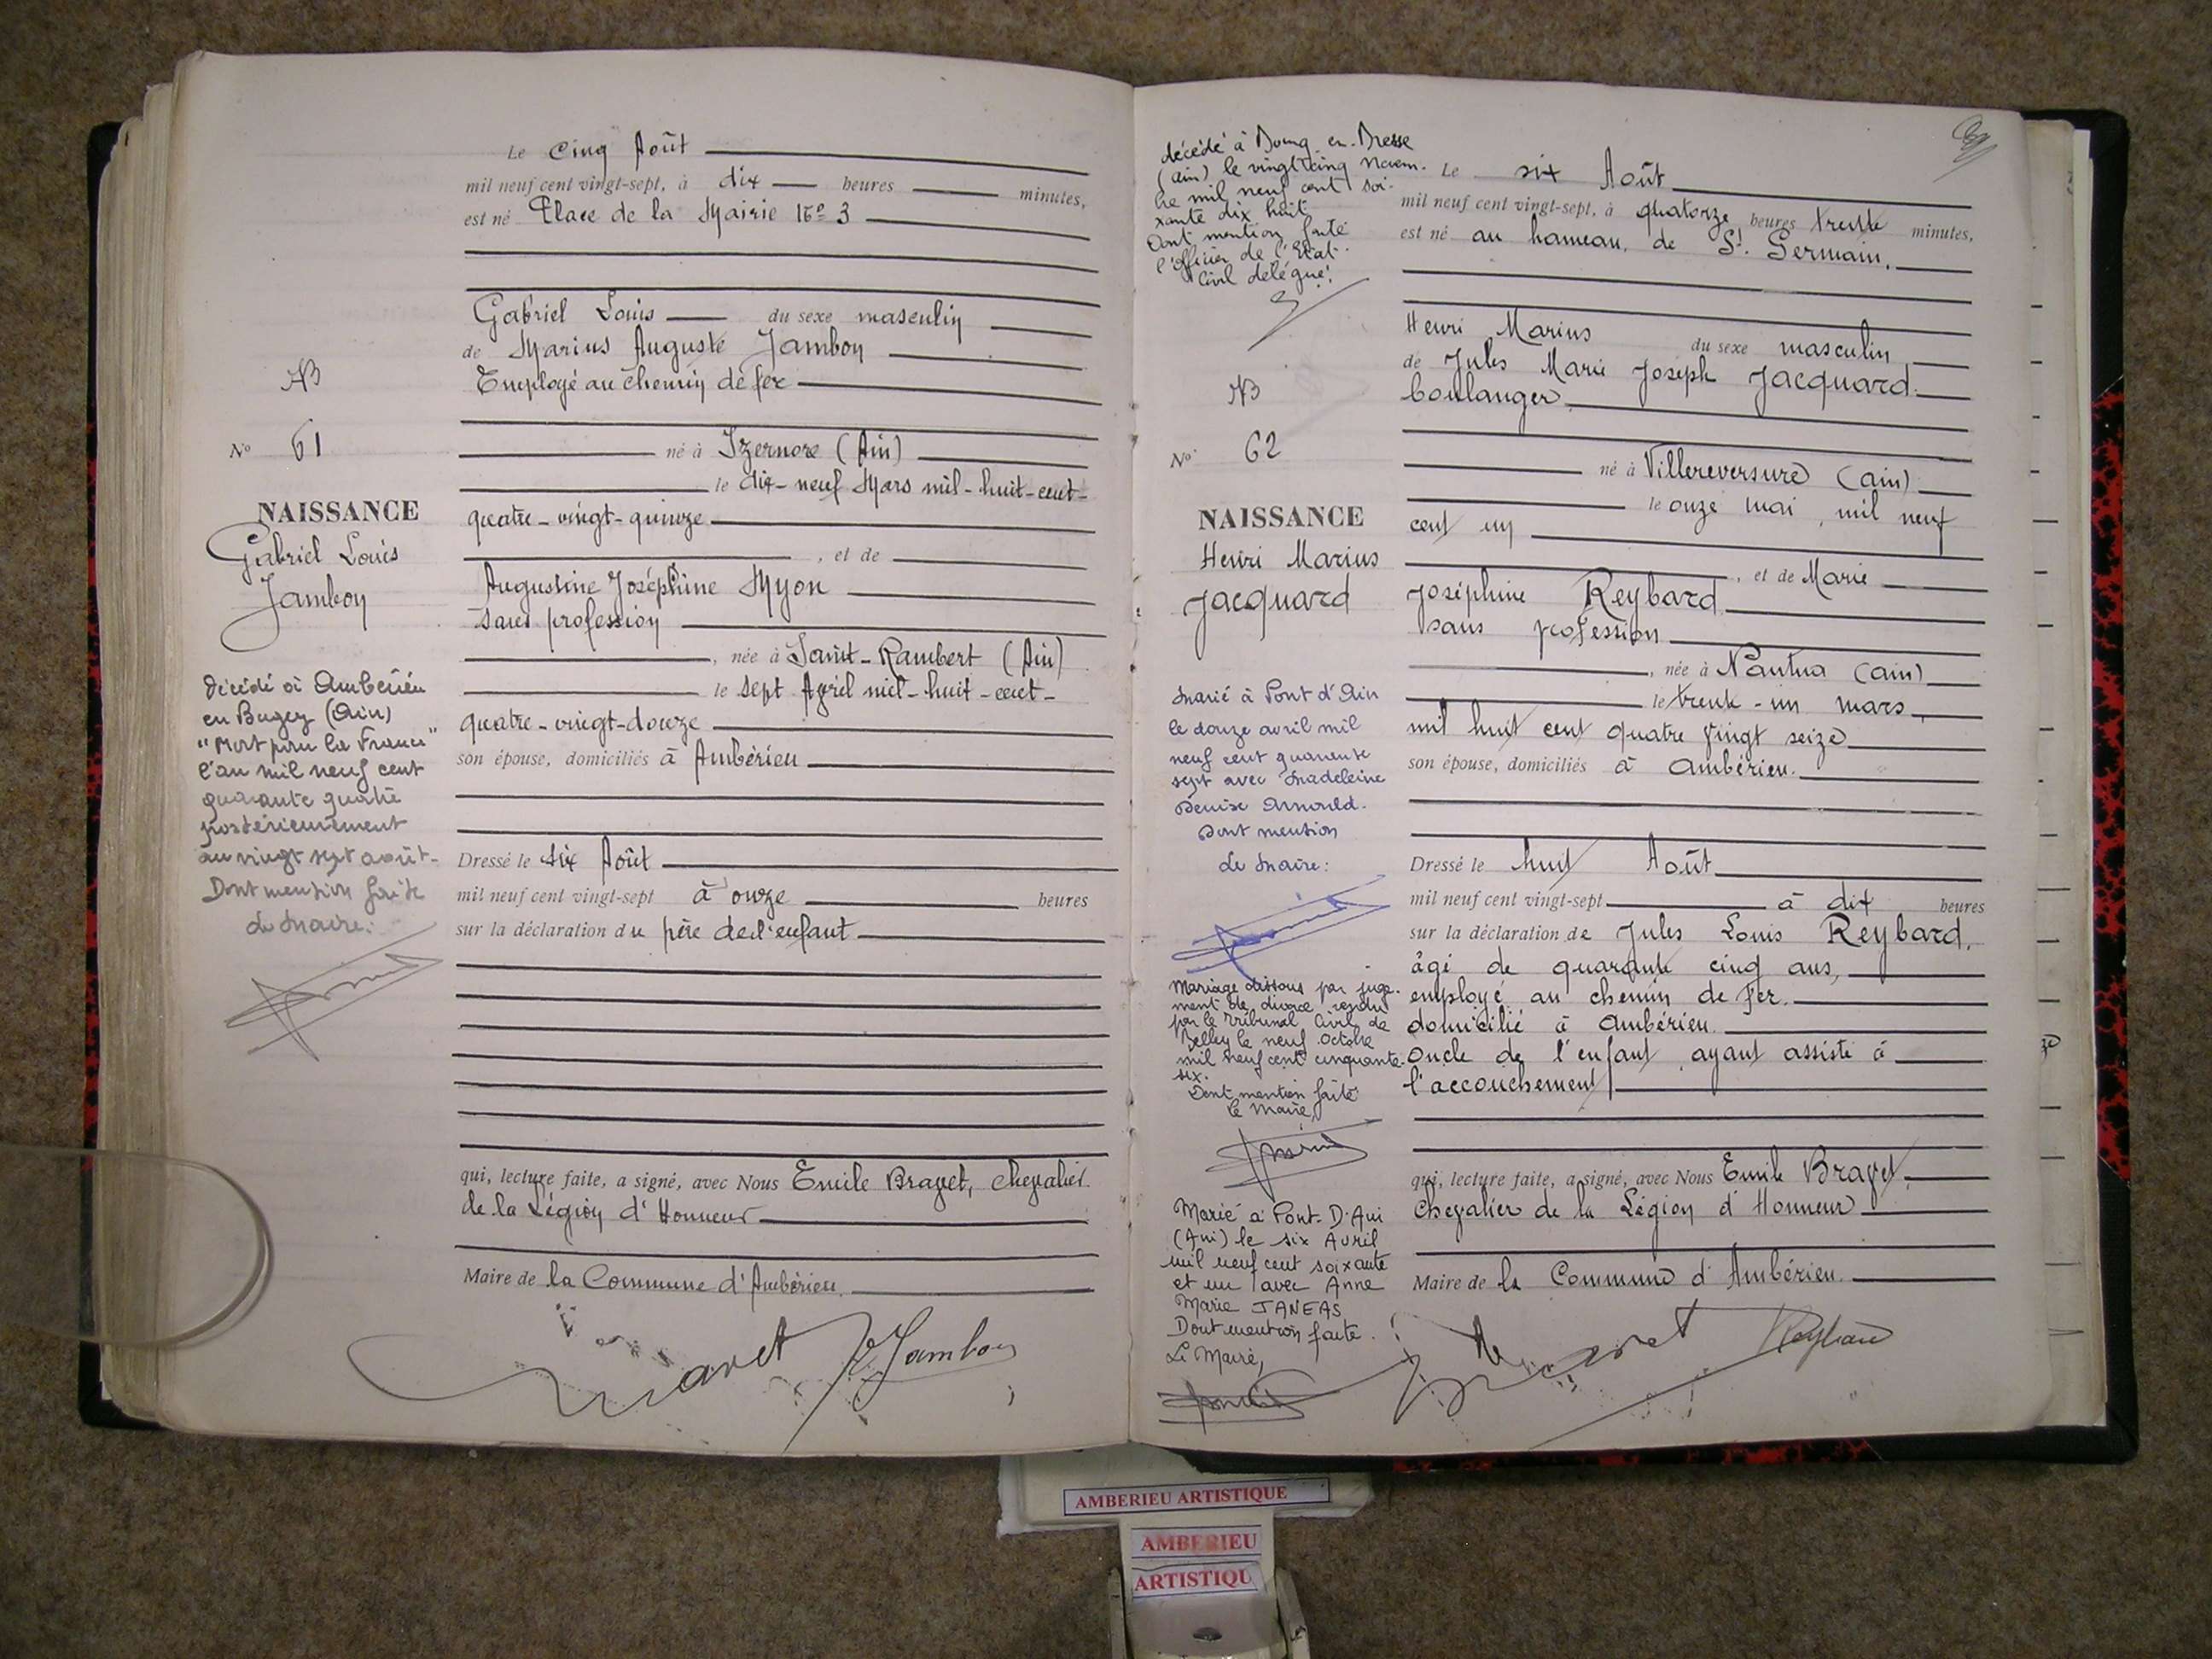 Le cinq Août
mil neuf cent vingt-sept, à dix heures minutes,
est né Place de la Mairie No 3
Gabriel Louis du sexe masculin
de Marius Auguste Jambon
Employé au chemin de fer
né à Izernore (Ain)
le dix-neuf Mars mil-huit-cent-
quatre-vingt-quinze
, et de
Augustine Joséphine Myon
sans profession
, née à Saint-Rambert (Ain)
le sept Avril mil-huit-cent-
quatre-vingt-douze
son épouse, domiciliés à Ambérieu
Dressé le six Août
mil neuf cent vingt-sept à onze heures
sur la déclaration du père de l'enfant
qui, lecture faite, a signé, avec Nous Emile Bravet, chevalier
de la Légion d'Honneur
Maire de la Commune d'Ambérieu.
Bravet Jambon
No 61
NAISSANCE
Gabriel Louis
Jambon
Décédé à Ambérieu
en Bugey (Ain)
"Mort pour la France"
l'an mil neuf cent
quarante quatre
postérieurement
au vingt sept août-
Dont mention faite
Le Maire:
décédé à Bourg-en-Bresse
(ain) le vingt cinq novem-
bre mil neuf cent soi-
xante dix huit
Dont mention faite
l'officier de l'Etat-
Civil délégué:
No 62
NAISSANCE
Henri Marius
Jacquard
Marié à Pont d'Ain
le douze avril mil
neuf cent quarante
sept avec Madeleine
Denise Arnould.
Dont mention
Le Maire:
Mariage dissous par juge-
ment de divorce rendu
par le Tribunal Civil de
Belley le neuf Octobre
mil neuf cent cinquante-
six.
Dont mention faite
Le Maire,
Marié à Pont-D'Ain
(Ain) le six Avril
mil neuf cent soixante
et un avec Anne
Marie JANEAS
Dont mention faite.
Le Maire,
Le six Août
mil neuf cent vingt-sept, à quatorze heures trente minutes,
est né au hameau de St. Germain.
Henri Marius du sexe masculin
de Jules Marie Joseph Jacquard
boulanger
né à Villereversure (ain)
le onze mai, mil neuf
cent un
, et de Marie
Joséphine Reybard
sans profession
, née à Nantua (ain)
le trente-un mars
mil huit cent quatre vingt seize
son épouse, domiciliés à Ambérieu.
Dressé le huit Août
mil neuf cent vingt-sept à dix heures
sur la déclaration de Jules Louis Reybard,
âgé de quarante cinq ans,
employé au chemin de fer.
domicilié à Ambérieu.
oncle de l'enfant, ayant assisté à
l'accouchement
qui, lecture faite, a signé, avec Nous Emile Bravet,
Chevalier de la Légion d'Honneur
Maire de la Commune d'Ambérieu.
Bravet Reybard
AMBERIEU ARTISTIQUE
AMBERIEU
ARTISTIQU